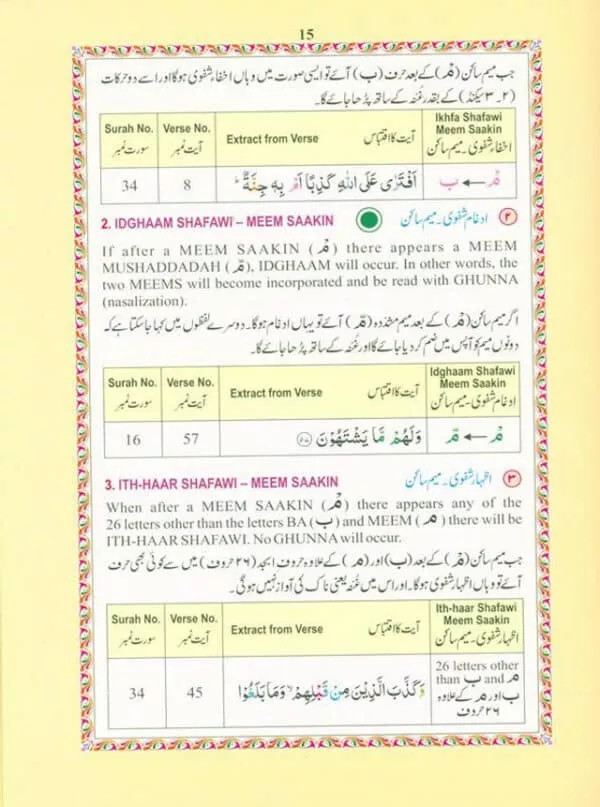 15
جب میم ساکن (مْ) کے بعد حرف (ب) آئے تو ایسی صورت میں وہاں اخفاء شفوی ہوگا اور اسے دو حرکات
(۲۔۳ سیکنڈ) کے بقدر غُنہ کے ساتھ پڑھا جائے گا۔
Surah No. Verse No. Extract from Verse آیت کا اقتباس Ikhfa Shafawi
Meem Saakin
سورت نمبر آیت نمبر اخفاء شفوی۔میم ساکن
34 8 اَفْتَرٰى عَلَى اللّٰهِ كَذِبًا اَمْ بِهٖ جِنَّةٌ ؕ مْ ← ب
2. IDGHAAM SHAFAWI – MEEM SAAKIN ادغام شفوی۔میم ساکن ۲
If after a MEEM SAAKIN (مْ) there appears a MEEM
MUSHADDADAH (مّ), IDGHAAM will occur. In other words, the
two MEEMS will become incorporated and be read with GHUNNA
(nasalization).
اگر میم ساکن (مْ) کے بعد میم مشدّدہ (مّ) آئے تو یہاں ادغام ہوگا۔ دوسرے لفظوں میں کہا جا سکتا ہے کہ
دونوں میم کو آپس میں ضم کر دیا جائے گا اور غُنہ کے ساتھ پڑھا جائے گا۔
Surah No. Verse No. Extract from Verse آیت کا اقتباس Idghaam Shafawi
Meem Saakin
سورت نمبر آیت نمبر ادغام شفوی۔میم ساکن
16 57 وَلَهُمْ مَّا يَشْتَهُوْنَ ۝۵۷ مْ ← مّ
3. ITH-HAAR SHAFAWI – MEEM SAAKIN اظہار شفوی۔میم ساکن ۳
When after a MEEM SAAKIN (مْ) there appears any of the
26 letters other than the letters BA (ب) and MEEM (م) there will be
ITH-HAAR SHAFAWI. No GHUNNA will occur.
جب میم ساکن (مْ) کے بعد (ب) اور (م) کے علاوہ حروف ابجد (۲۶ حروف) میں سے کوئی بھی حرف
آئے تو وہاں اظہار شفوی ہوگا۔ اور اس میں غُنہ یعنی ناک کی آواز نہیں ہوگی۔
Surah No. Verse No. Extract from Verse آیت کا اقتباس Ith-haar Shafawi
Meem Saakin
سورت نمبر آیت نمبر اظہار شفوی۔میم ساکن
34 45 وَكَذَّبَ الَّذِيْنَ مِنْ قَبْلِهِمْ ۙ وَمَا بَلَغُوْا 26 letters other
than ب and م
ب اور م کے علاوہ
۲۶ حروف